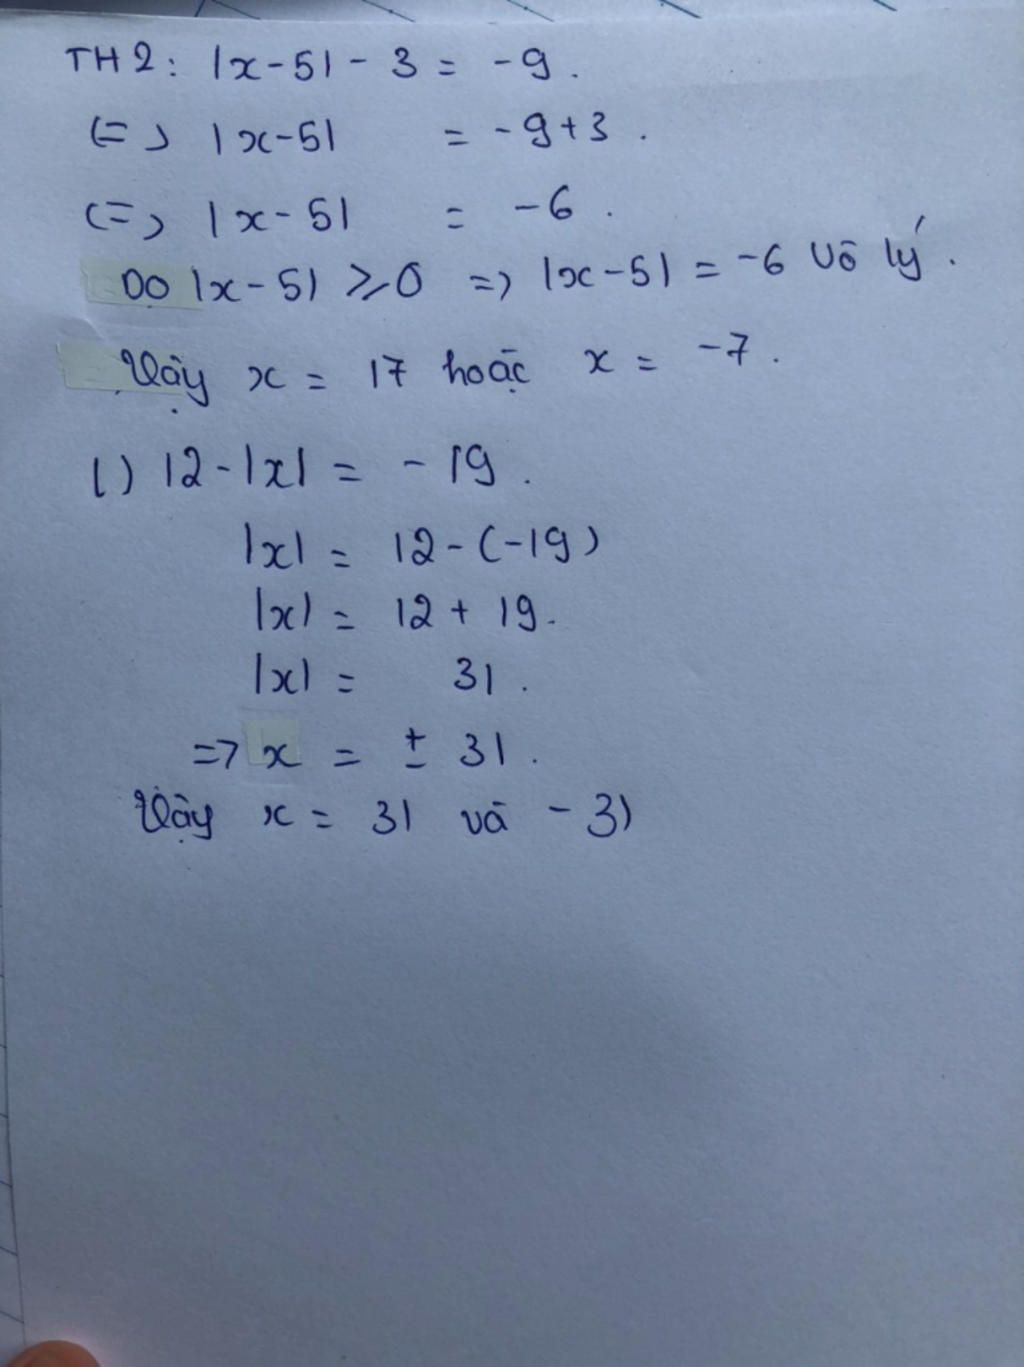 TH2: |x-5| - 3 = -9.
(=) |x-5| = -9+3.
(=) |x-5| = -6.
Do |x-5| ⩾ 0 => |x-5| = -6 vô lý.
Vậy x = 17 hoặc x = -7.
l) 12-|x| = -19.
|x| = 12-(-19)
|x| = 12 + 19.
|x| = 31.
=> x = ± 31.
Vậy x = 31 và -31